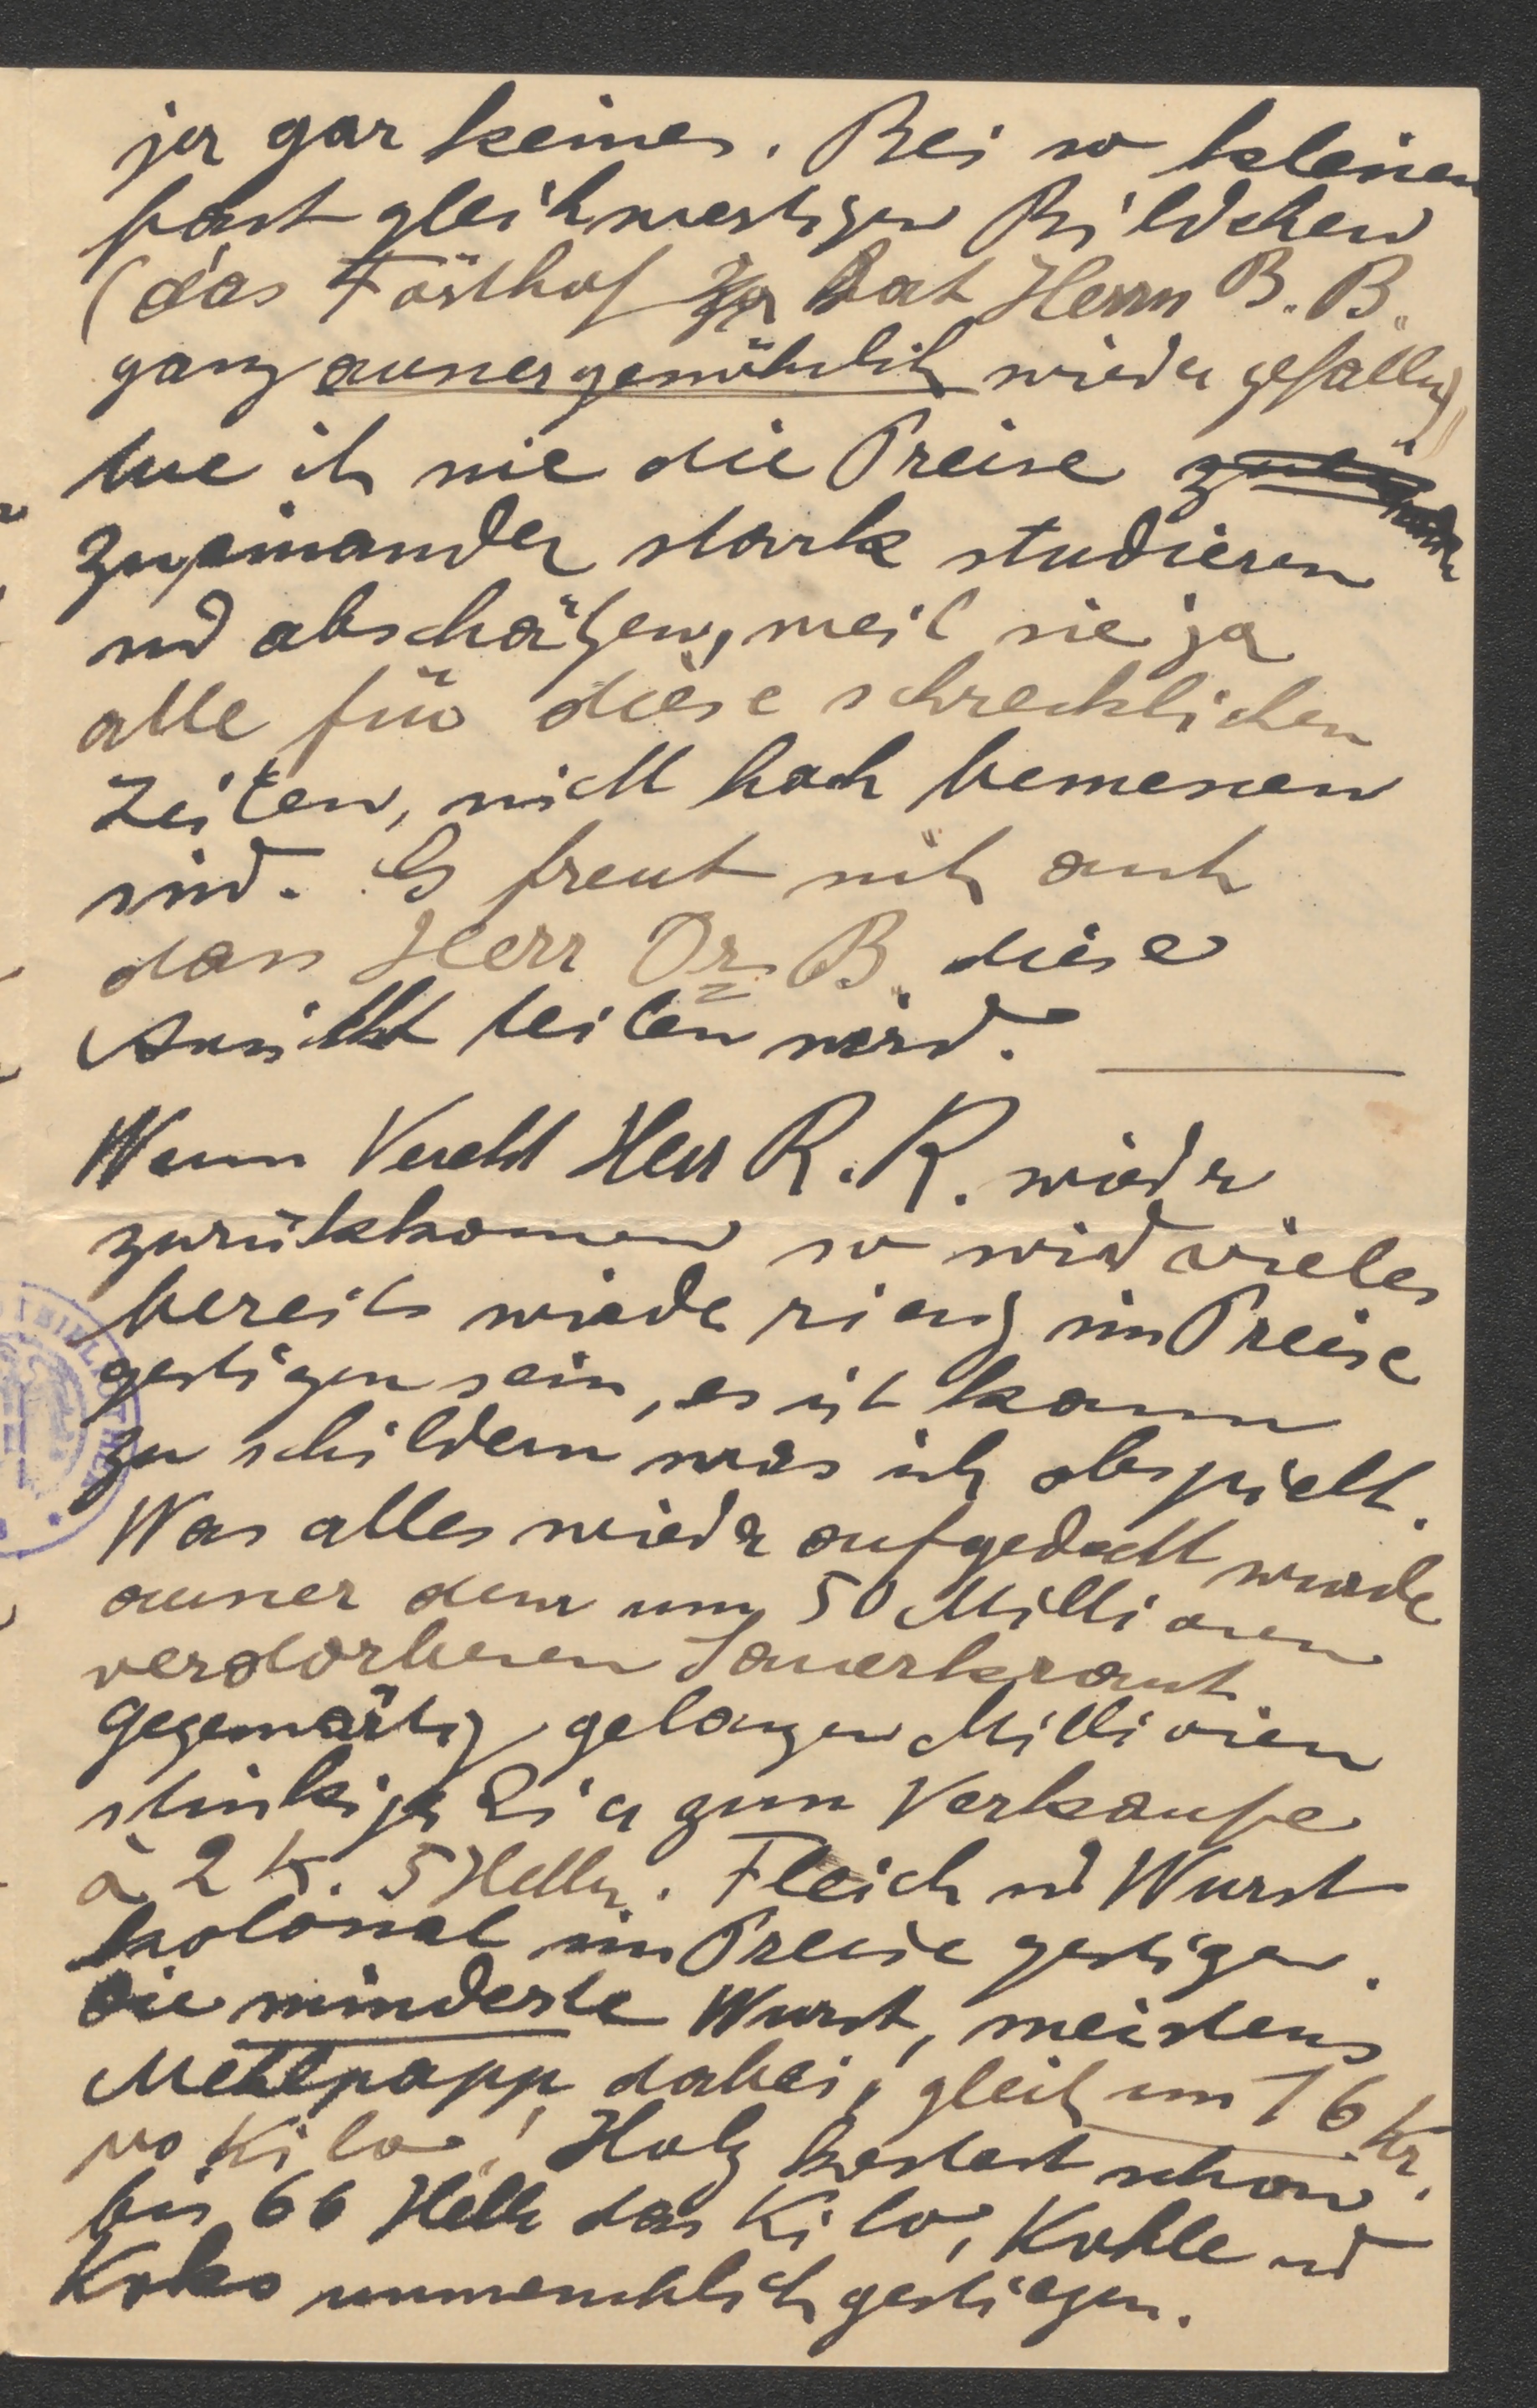 ja gar keines. Bei so kleinen
fast gleichwertigen Bildchen
(das Fösthof hat Herrn B. B.
ganz ausergewöhnlich wieder gefallen)
tue ich nie die Preise
zueinander stark studieren
und abschätzen, weil sie ja
alle für diese schrecklichen
Zeiten, nicht hoch bemessen
sind. Es freut mich auch
dass Herr Dr. B. diese
Ansicht teilen wird.
Wenn Verehrt Herr R. R. wieder
zurückkommen so wird vieles
bereits wieder riesig im Preise
gestigen sein, es ist kaum
zu schildern was sich abspielt.
Was alles wieder aufgedeckt wurde
ausser dem um 50 Millionen
verdorbenen Sauerkraut.
Gegenwärtig gelangen Millionen
stinkige Eier zum Verkaufe
à 2 K. 5 Heller. Fleich und Wurst
kolossal im Preise gestigen.
Die minderste Wurst, meistens
Mehlpapp dabei, gleich um 16 Kr.
pro Kilo! Holz kostet schon
bis 66 Heller das Kilo, Kohle und
Koks unmenschlich gestiegen.